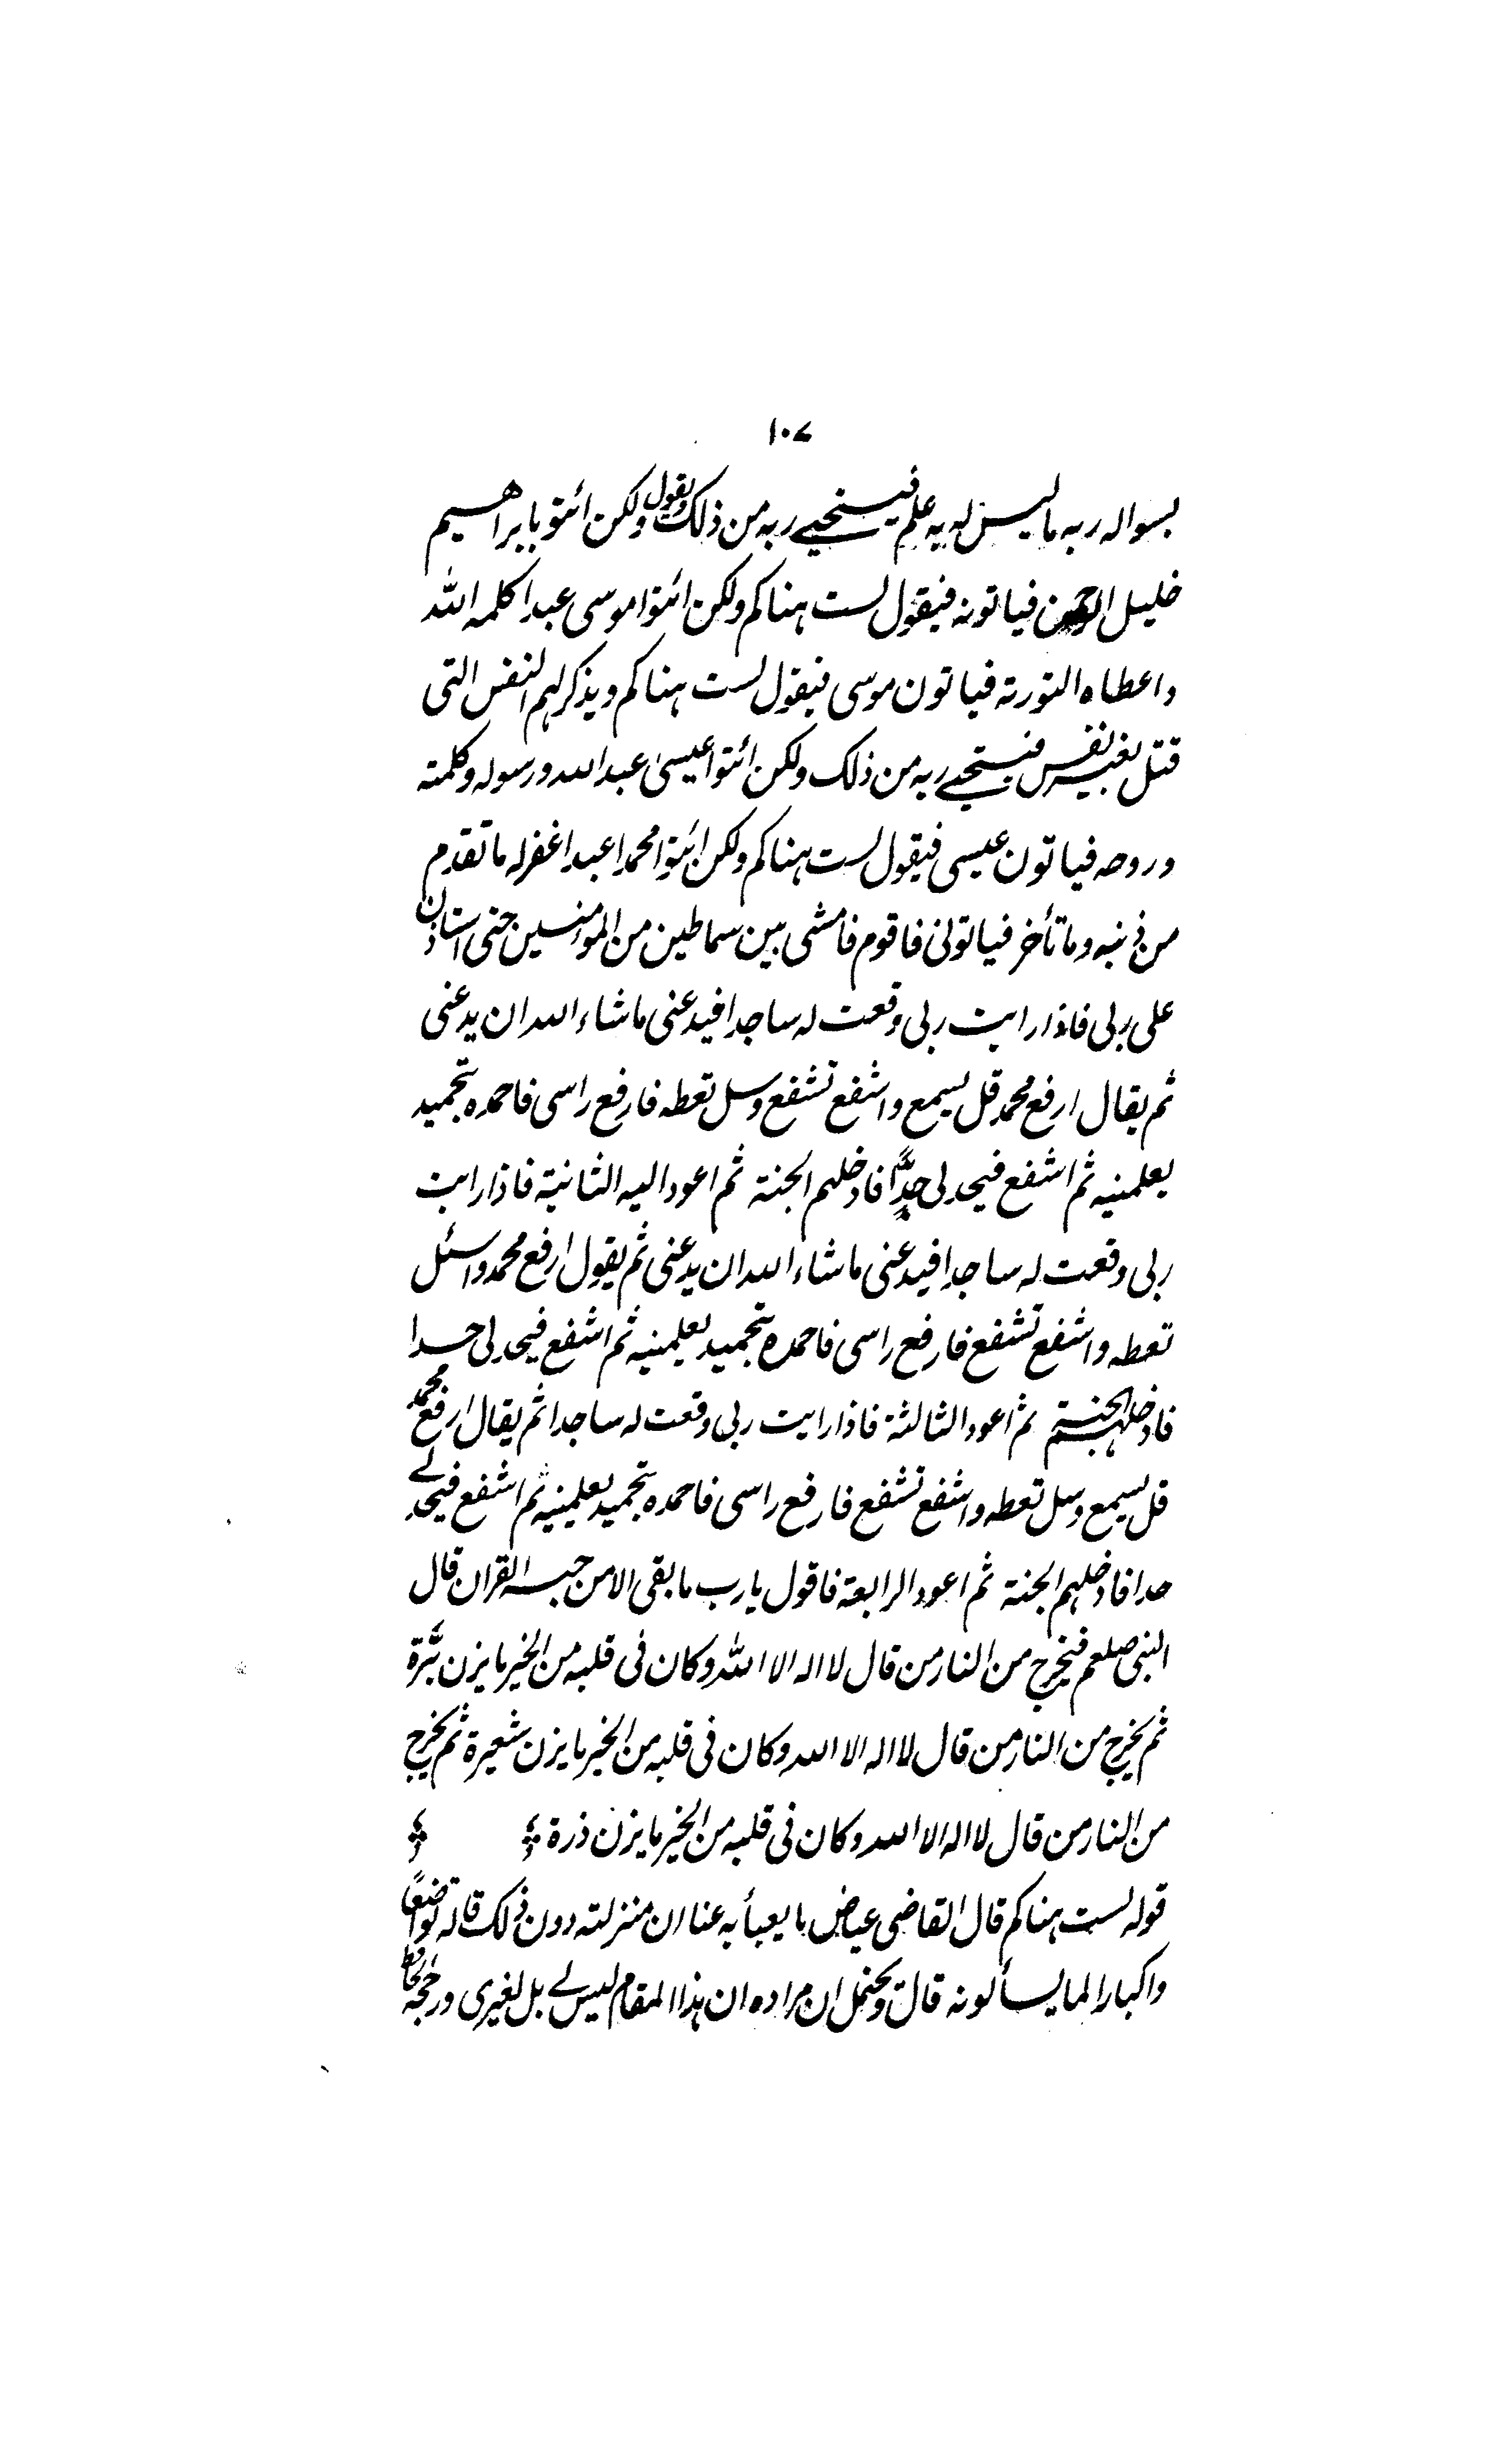 ١٠٧
بسواله ربه ما ليس له به علم فيستحيے ربه من ذلك ويقول ولكن ائتو بابراهيم
خليل الرحمن فياتونه فيقول لست هناكم ولكن ائتوا موسى عبدا كلمه الله
واعطاه التورىة فياتون موسى فيقول لست هناكم ويذكر لهم النفس التى
قتل بغير نفس فيستحيے ربه من ذلك ولكن ائتوا عيسىٰ عبد الله ورسوله وكلمته
وروحه فياتون عيسى فيقول لست هناكم ولكن ائتوا محمدا عبدا غفر له ما تقدم
من ذنبه وما تأخر فياتونى فاقوم فامشى بين سماطين من المؤمنين حتى استاذن
على ربى فاذا رايت ربى وقعت له ساجدا فيدعنى ما شاء الله ان يدعنى
ثم يقال ارفع محمد قل يسمع واشفع تشفع وسل تعطه فارفع راسى فاحمده بتحميد
يعلمنيه ثم اشفع فيحد لى حدًّا فادخلهم الجنة ثم اعود اليه الثانية فاذا رايت
ربى وقعت له ساجدا فيدعنى ما شاء الله ان يدعنى ثم يقول ارفع محمد واسئل
تعطه واشفع تشفع فارفع راسى فاحمده بتحميد يعلمنيه ثم اشفع فيحد لى حدا
فادخلهم الجنة ثم اعود الثالثة فاذا رايت ربى وقعت له ساجدا ثم يقال ارفع محمد
قل يسمع وسل تعطه واشفع تشفع فارفع راسى فاحمده بتحميد يعلمنيه ثم اشفع فيحد لے
حدا فادخلهم الجنة ثم اعود الرابعة فاقول يا رب ما بقى الا من حبسه القران قال
النبى صلعم فيخرج من النار من قال لا اله الا الله وكان فى قلبه من الخير ما يزن بُرَّة
ثم يخرج من النار من قال لا اله الا الله وكان فى قلبه من الخير ما يزن شعيرة ثم يخرج
من النار من قال لا اله الا الله وكان فى قلبه من الخير ما يزن ذرة
قوله لست هناكم قال القاضى عياض ما يعبأ به عنا ان منزلته دون ذلك قاله تواضعًا
واكبارا لما يسألونه قال ويحتمل ان مراده ان هذا المقام ليس لے بل لغيرى ورجحه الحافظ